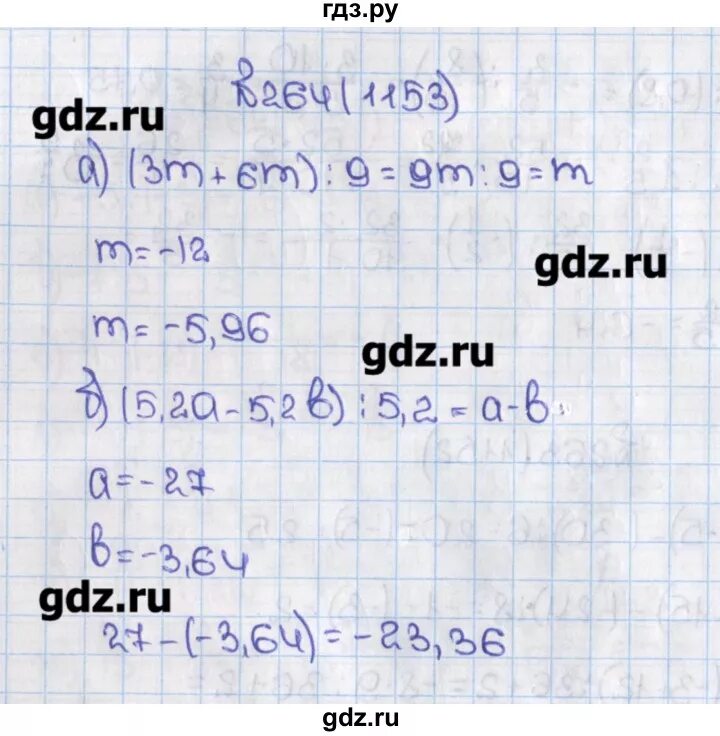 гдз.ру
В264(1153)
gdz.ru
а) (3m + 6m) : 9 = 9m : 9 = m
m = -12
gdz.ru
m = -5,96
gdz.ru
б) (5,2а - 5,2в) : 5,2 = а-в
а = -27
в = -3,64
gdz.ru
27 - (-3,64) = -23,36
gdz.ru